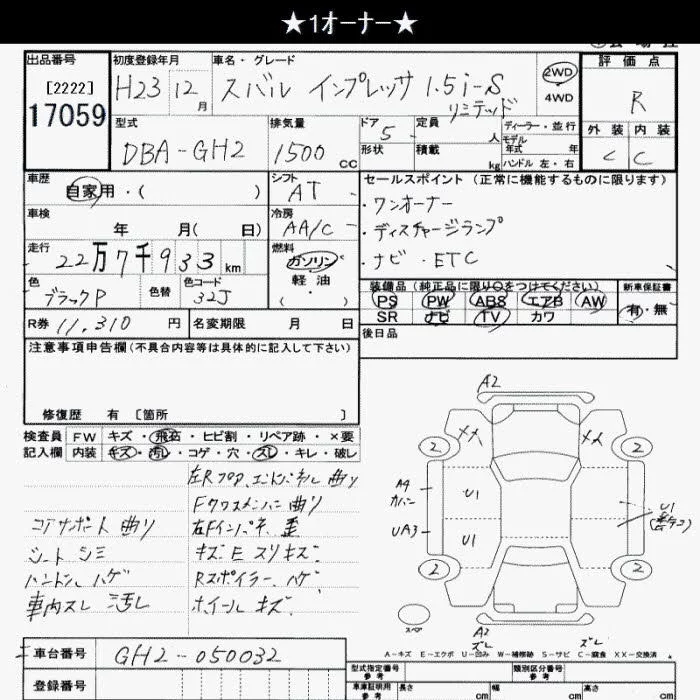 ★1オーナー★
出品番号
[2222]
17059
初度登録年月
H23 12月
車名・グレード
スバル インプレッサ 1.5i-S
リミテッド
2WD
4WD
評価点
R
外装 内装
C C
型式
DBA-GH2
排気量
1500 cc
ドア
5
形状
定員
人
積載
kg
ディーラー・並行
モデル年式 年
ハンドル 左・右
車歴
自家用・( )
シフト
AT
車検
年 月( 日)
冷房
AA/C
走行
22万7千933km
燃料
ガソリン
軽油
( ・ )
色
ブラックP
色替
色コード
32J
R券 11,310 円
名変期限 月 日
セールスポイント (正常に機能するものに限ります)
・ワンオーナー
・ディスチャージランプ
・ナビ ・ETC
装備品(純正品に限り○をつけてください)
PS PW ABS エアB AW
SR ナビ TV カワ
新車保証書
有・無
後日品
注意事項申告欄(不具合内容等は具体的に記入して下さい)
修復歴 有 [箇所 ]
検査員 FW キズ・飛石・ヒビ割・リペア跡・×要
記入欄 内装 キズ・汚レ・コゲ・穴・スレ・キレ・破レ
左Rフロア、エンドパネル 曲り
Fクロスメンバー 曲り
コアサポート 曲り
左Fインパネ 歪
シート シミ
キズ E スリキズ
ハンドル ハゲ
Rスポイラー ハゲ
車内スレ 汚レ
ホイール キズ
A2
XX XX
2 2
A4
カバー
U1
UA3
U1
U1
2 2
スペア
A2
ズレ
ズレ
A-キズ E-エクボ U-凹み W-補修跡 S-サビ C-腐食 XX-交換済
車台番号 GH2-050032
登録番号
型式指定番号
参考
類別区分番号
参考
車車証明用
参考
長さ cm
幅 cm
高さ cm